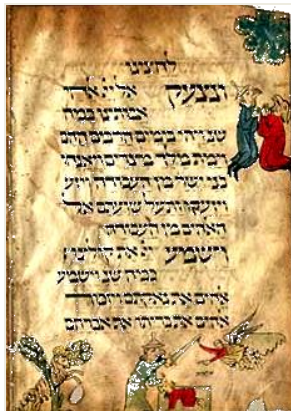 לחצינו
ונצעק אל ייי אלהי
אבותינו כמה
שנ׳ ויהי בימים הרבים ההם
וימת מלך מצרים ויאנחו
בני ישר׳ מן העבודה ויזע
ויזעקו ותעל שועתם אל
האלהים מן העבודה
וישמע ייי את קולינו
כמה שנ׳ וישמע
אלהים את נאקתם ויזכר
אלהים את בריתו את אברהם